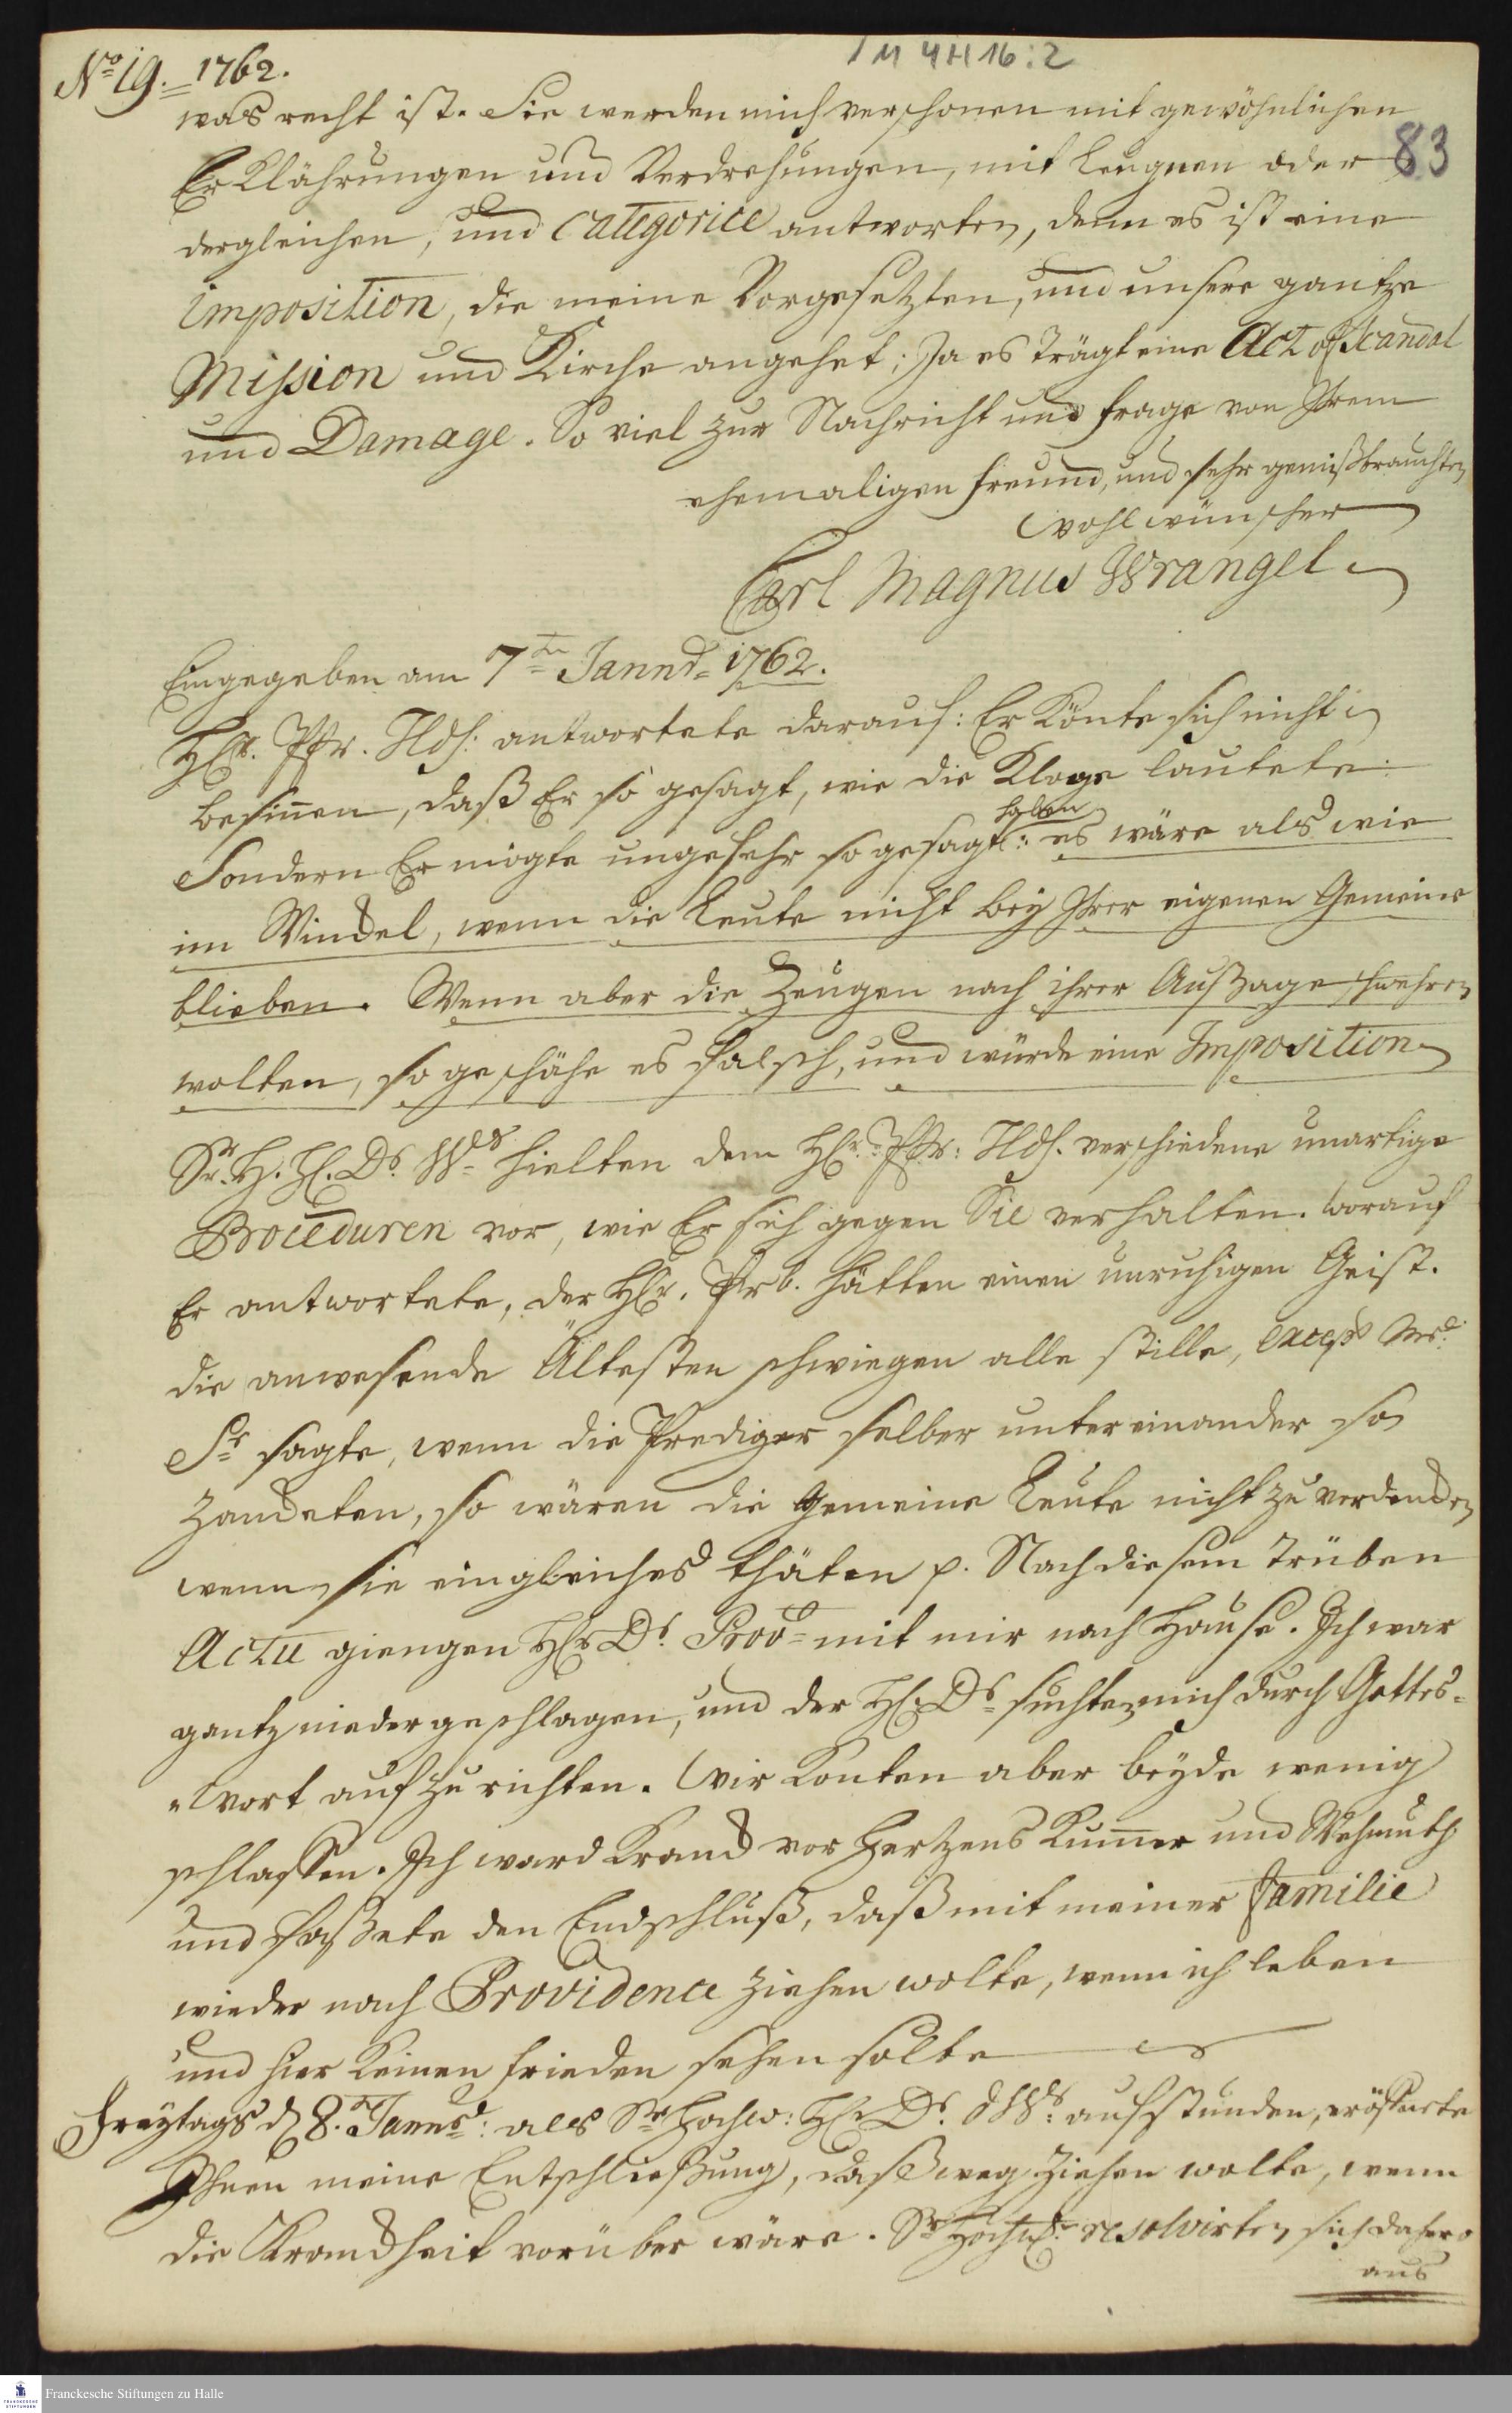 1 M 4H 16:2
No 19. 1762.
83
was recht ist. Sie werden mich verschonen mit gewöhnlichen
Erklährungen und Verdrehungen, mit leugnen oder
dergleichen, und categorice antworten, denn es ist eine
imposition, die meine Vorgesetzten, und unsere gantze
Mission und Kirche angehet; Ja es trägt eine Act of Scandal
und Damage. So viel zur Nachricht und frage von Ihrem
ehemaligen freund, und sehr gemißbrauchten
wohlwünscher
Carl Magnus Wrangel.
Eingegeben am 7ten Januar 1762.
HErr. Pfr. Hds: antwortete darauf: Er könte sich nicht
besinnen, daß Er so gesagt, wie die Klage lautete.
Sondern Er mögte ungefehr so gesagt haben: es wäre als wie
im Winckel, wenn die Leute nicht bey Ihrer eigenen Gemeine
blieben. Wenn aber die Zeugen nach ihrer Außage schwehren
wolten, so geschähe es falsch, und würde eine Imposition
Sr. H. H. Dr. Wr. hielten dem HErr. Pfr: Hds. verschiedene unartige
Proceduren vor, wie Er sich gegen Sie verhalten. worauf
Er antwortete, der HEr. Prb. hätten einen unruhigen Geist.
die anwesende Ältesten schwiegen alle stille, except
Sr sagte, wenn die Prediger selber untereinander so
zanckten, so wären die Gemeine Leute nicht zu verdencken
wenn sie eingleiches thäten p. Nach diesem trüben
Actu giengen HEr Dr. Prob mit mir nach Hause. Ich war
gantz niedergeschlagen, und der HE. Dr suchten mich durch Gottes-
wort aufzurichten. Wir konten aber beyde wenig
schlaffen. Ich ward kranck vor Hertzens Kummer und Wehmuth
und fassete den Endschluß, daß mit meiner familie
wieder nach Providence ziehen wolte, wenn ich leben
und hier keinen frieden sehen solte
Freytags d 8. Januar: als Sr Hochw: HEr Dr. Wr: aufstunden, eröffnete
Ihnen meine Entschließung, daß weg ziehen wolte, wenn
die Kranckheit vorüber wäre. Sr Hochw: resolvirten sich dahero
aus
Franckesche Stiftungen zu Halle